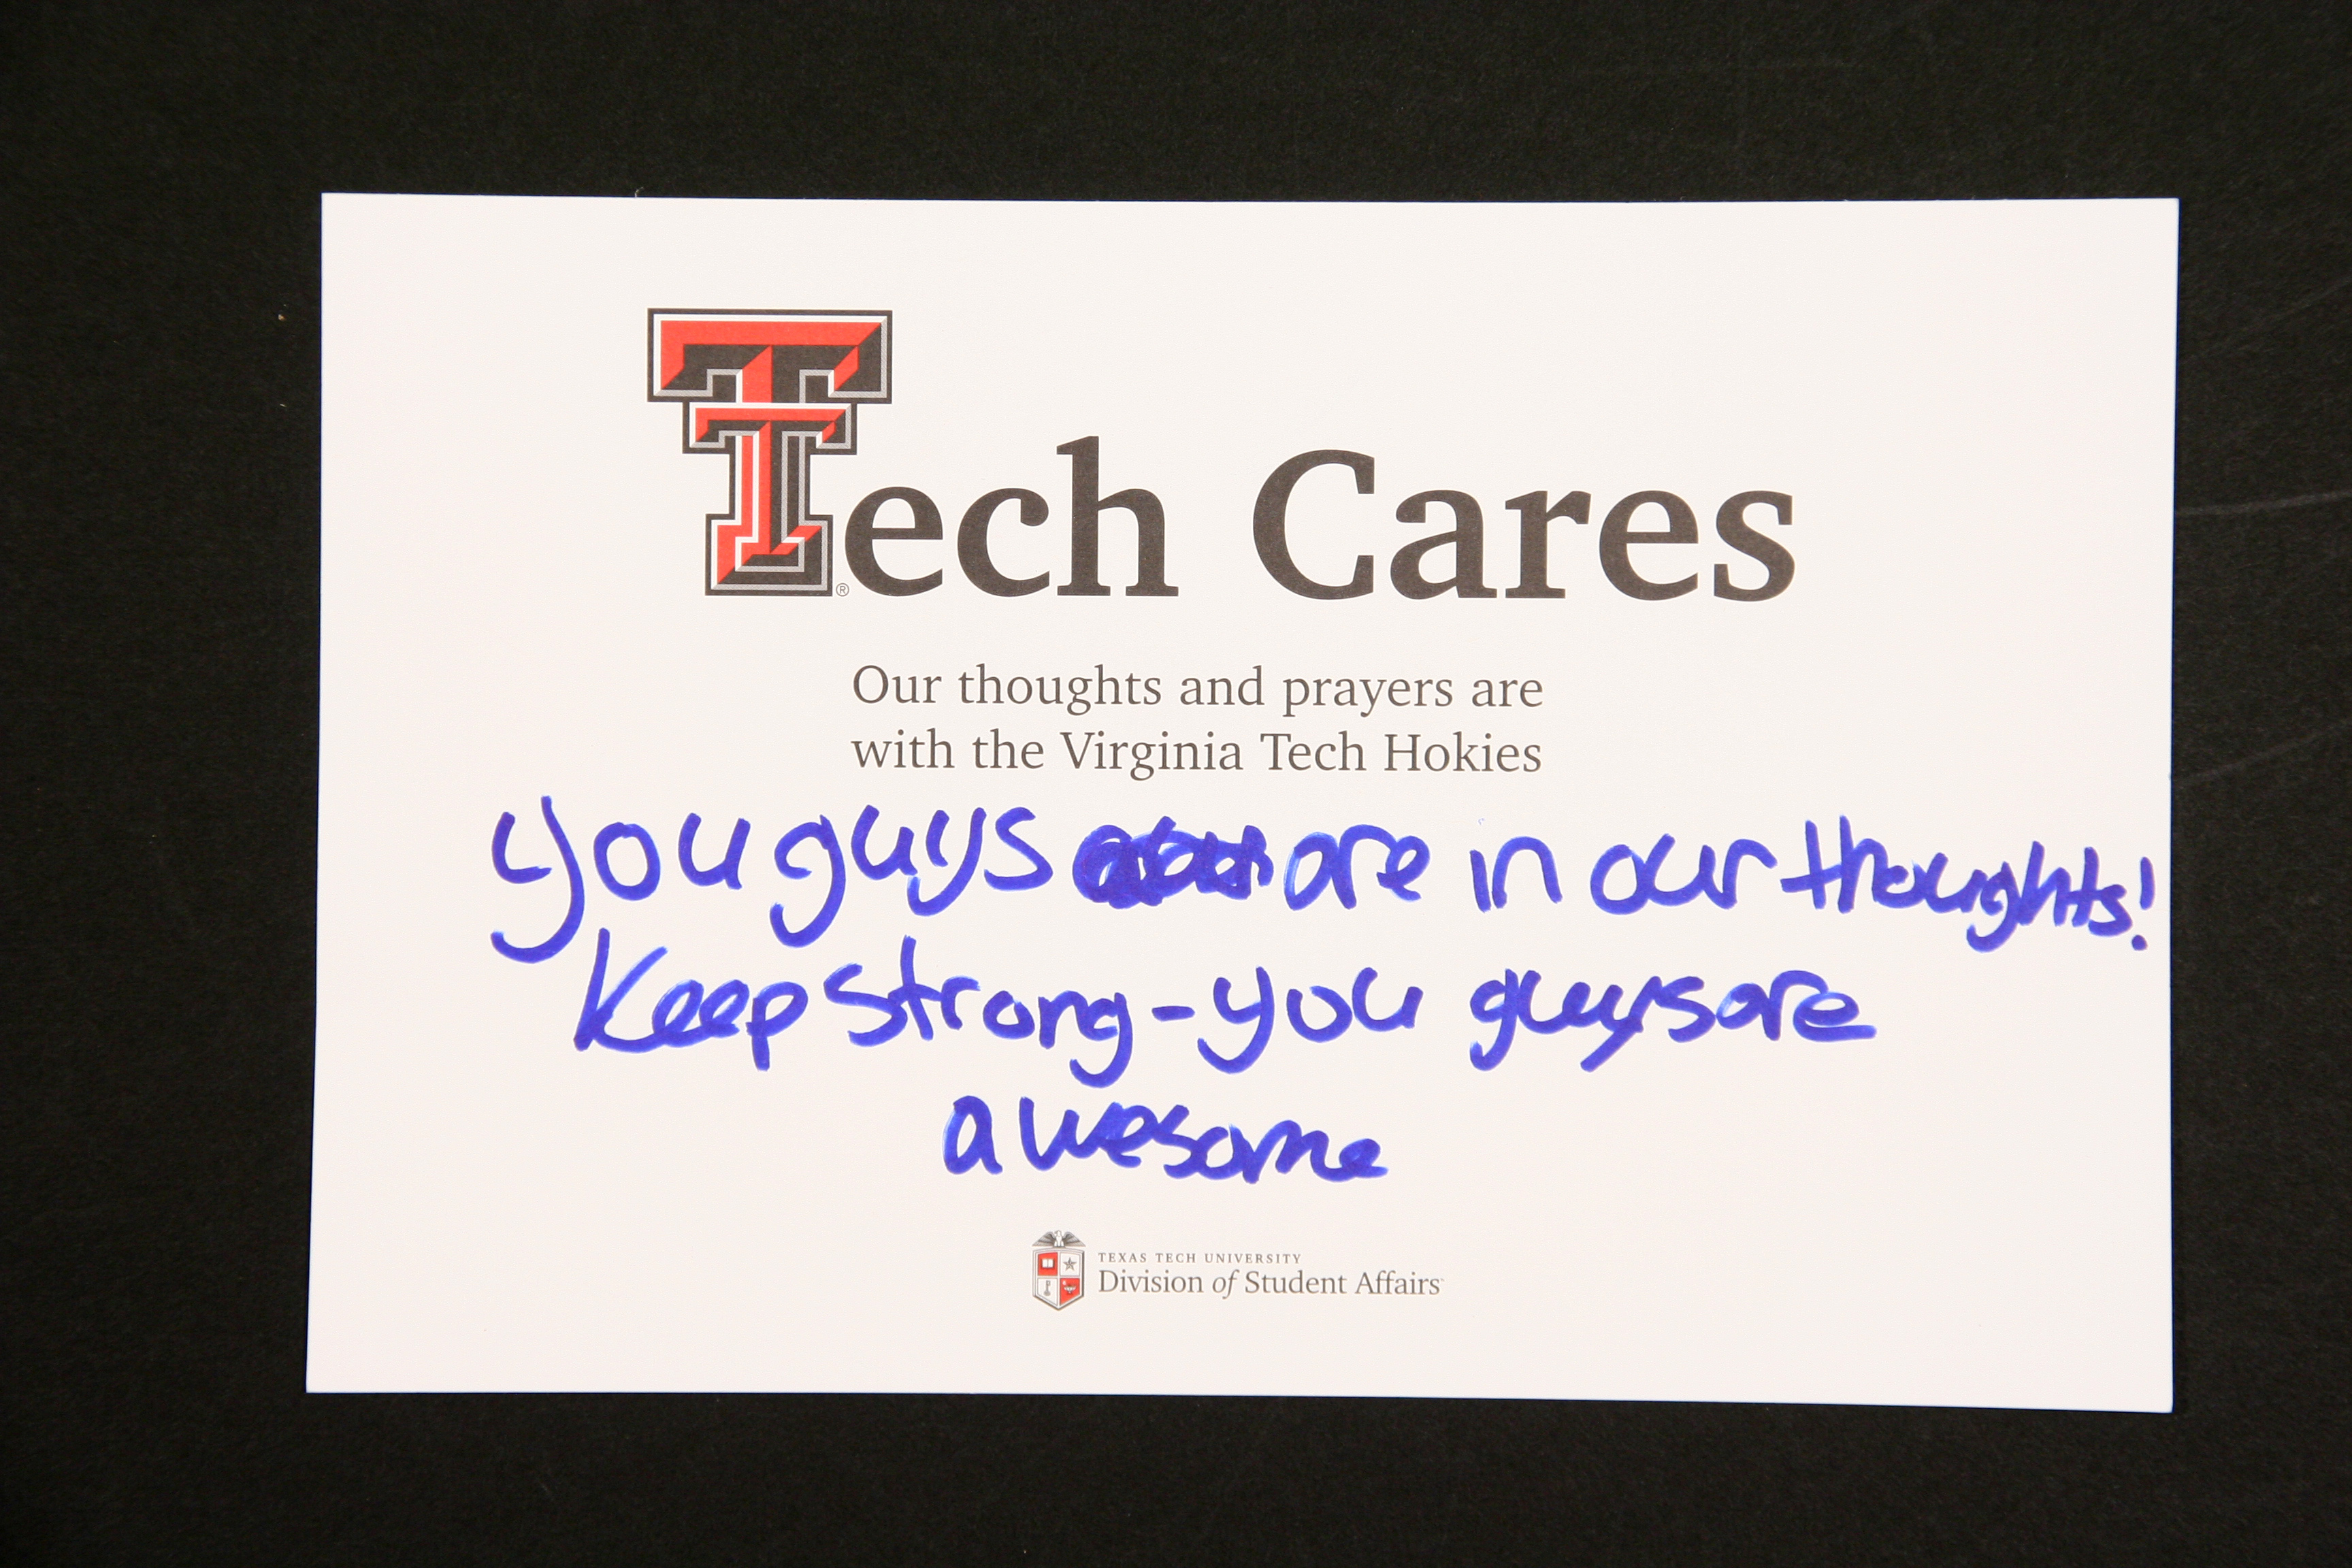 Tech Cares
Our thoughts and prayers are
with the Virginia Tech Hokies
you guys are in our thoughts!
Keep strong - you guys are
awesome
TEXAS TECH UNIVERSITY
Division of Student Affairs